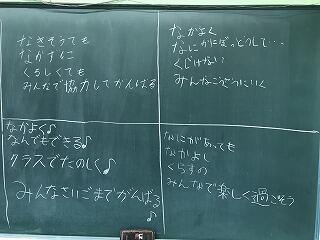 なきそうでも
なかずに
くるしくても
みんなで協力してがんばる
なかまと
なにかにぼっとうして…
くじけない
みんなこうどうにいく
なかよく♪
なんでもできる♪
クラスでたのしく♪
みんなさいごまでがんばる♪
なにがあっても
なかよし
くらすの
みんなで楽しく過ごそう